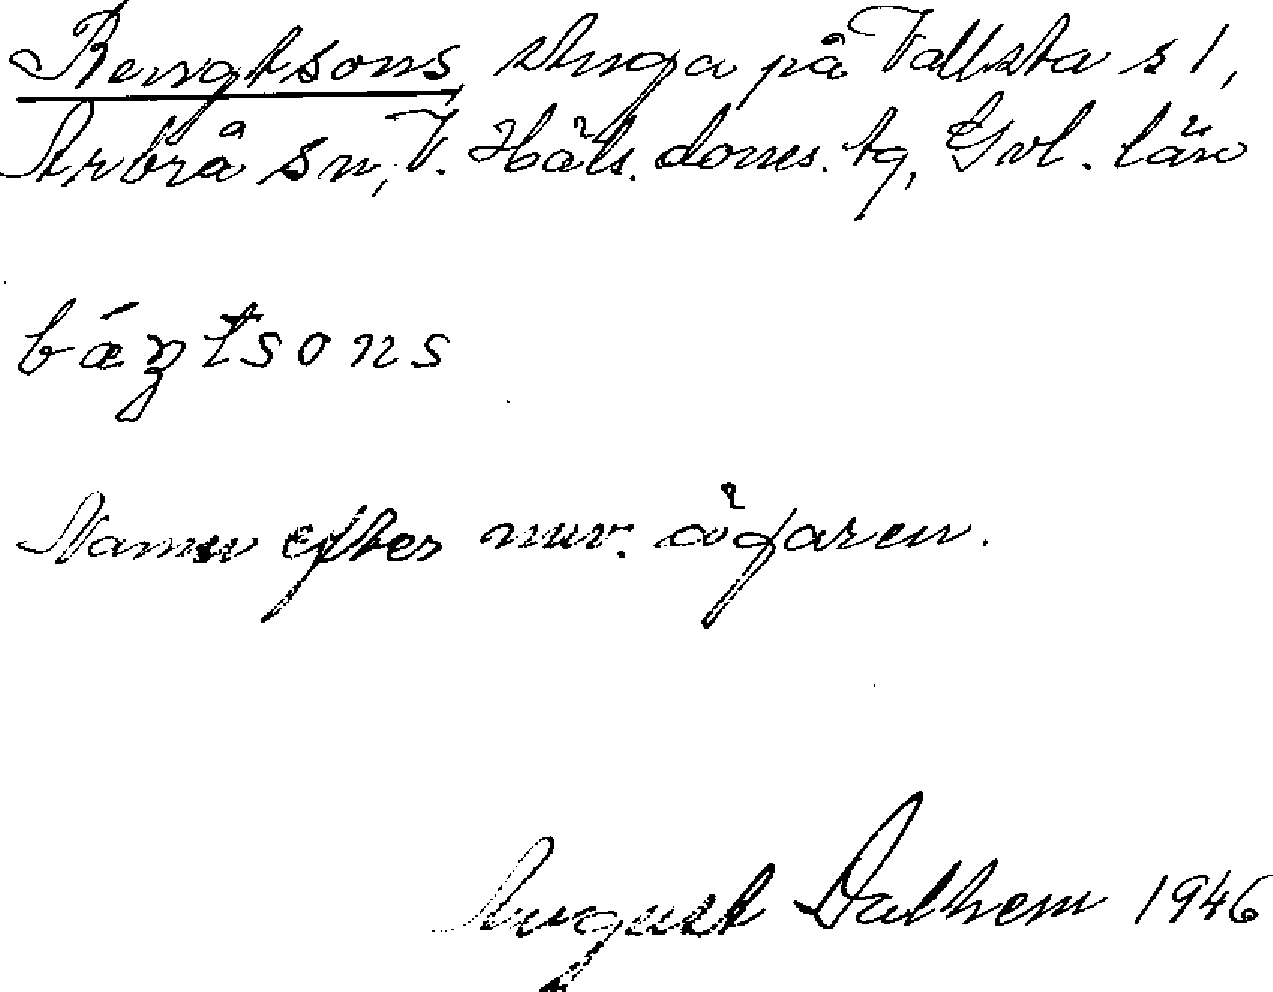 Bengtsons stuga på Vallsta s 1,
Arbrå sn, V. Häls. doms. tg, Gvl. län
bá̈ŋtsons
Namn efter nuv. ägaren.
August Dalhem 1946